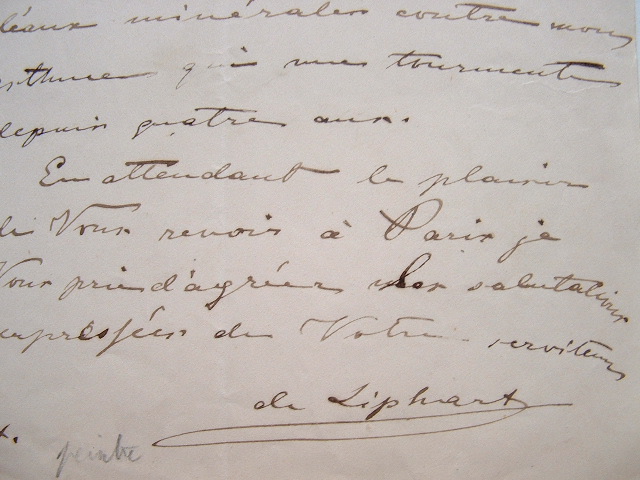 d'eaux minérales contre mon
asthme qui me tourmente
depuis quatre ans.
En attendant le plaisir
de Vous revoir à Paris je
Vous prie d'agréer les salutations
empressées de Votre serviteur
de Liphart
peintre